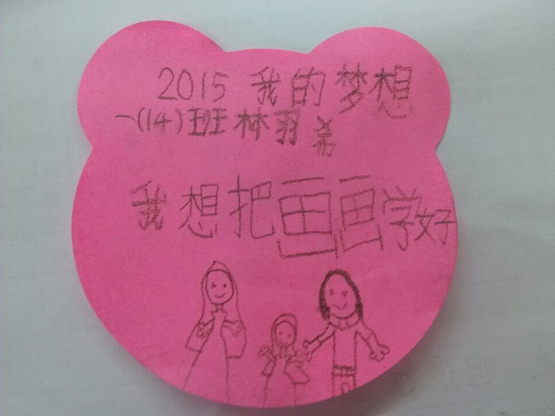 2015 我的梦想
一(14)班林羽希
我想把画画学好